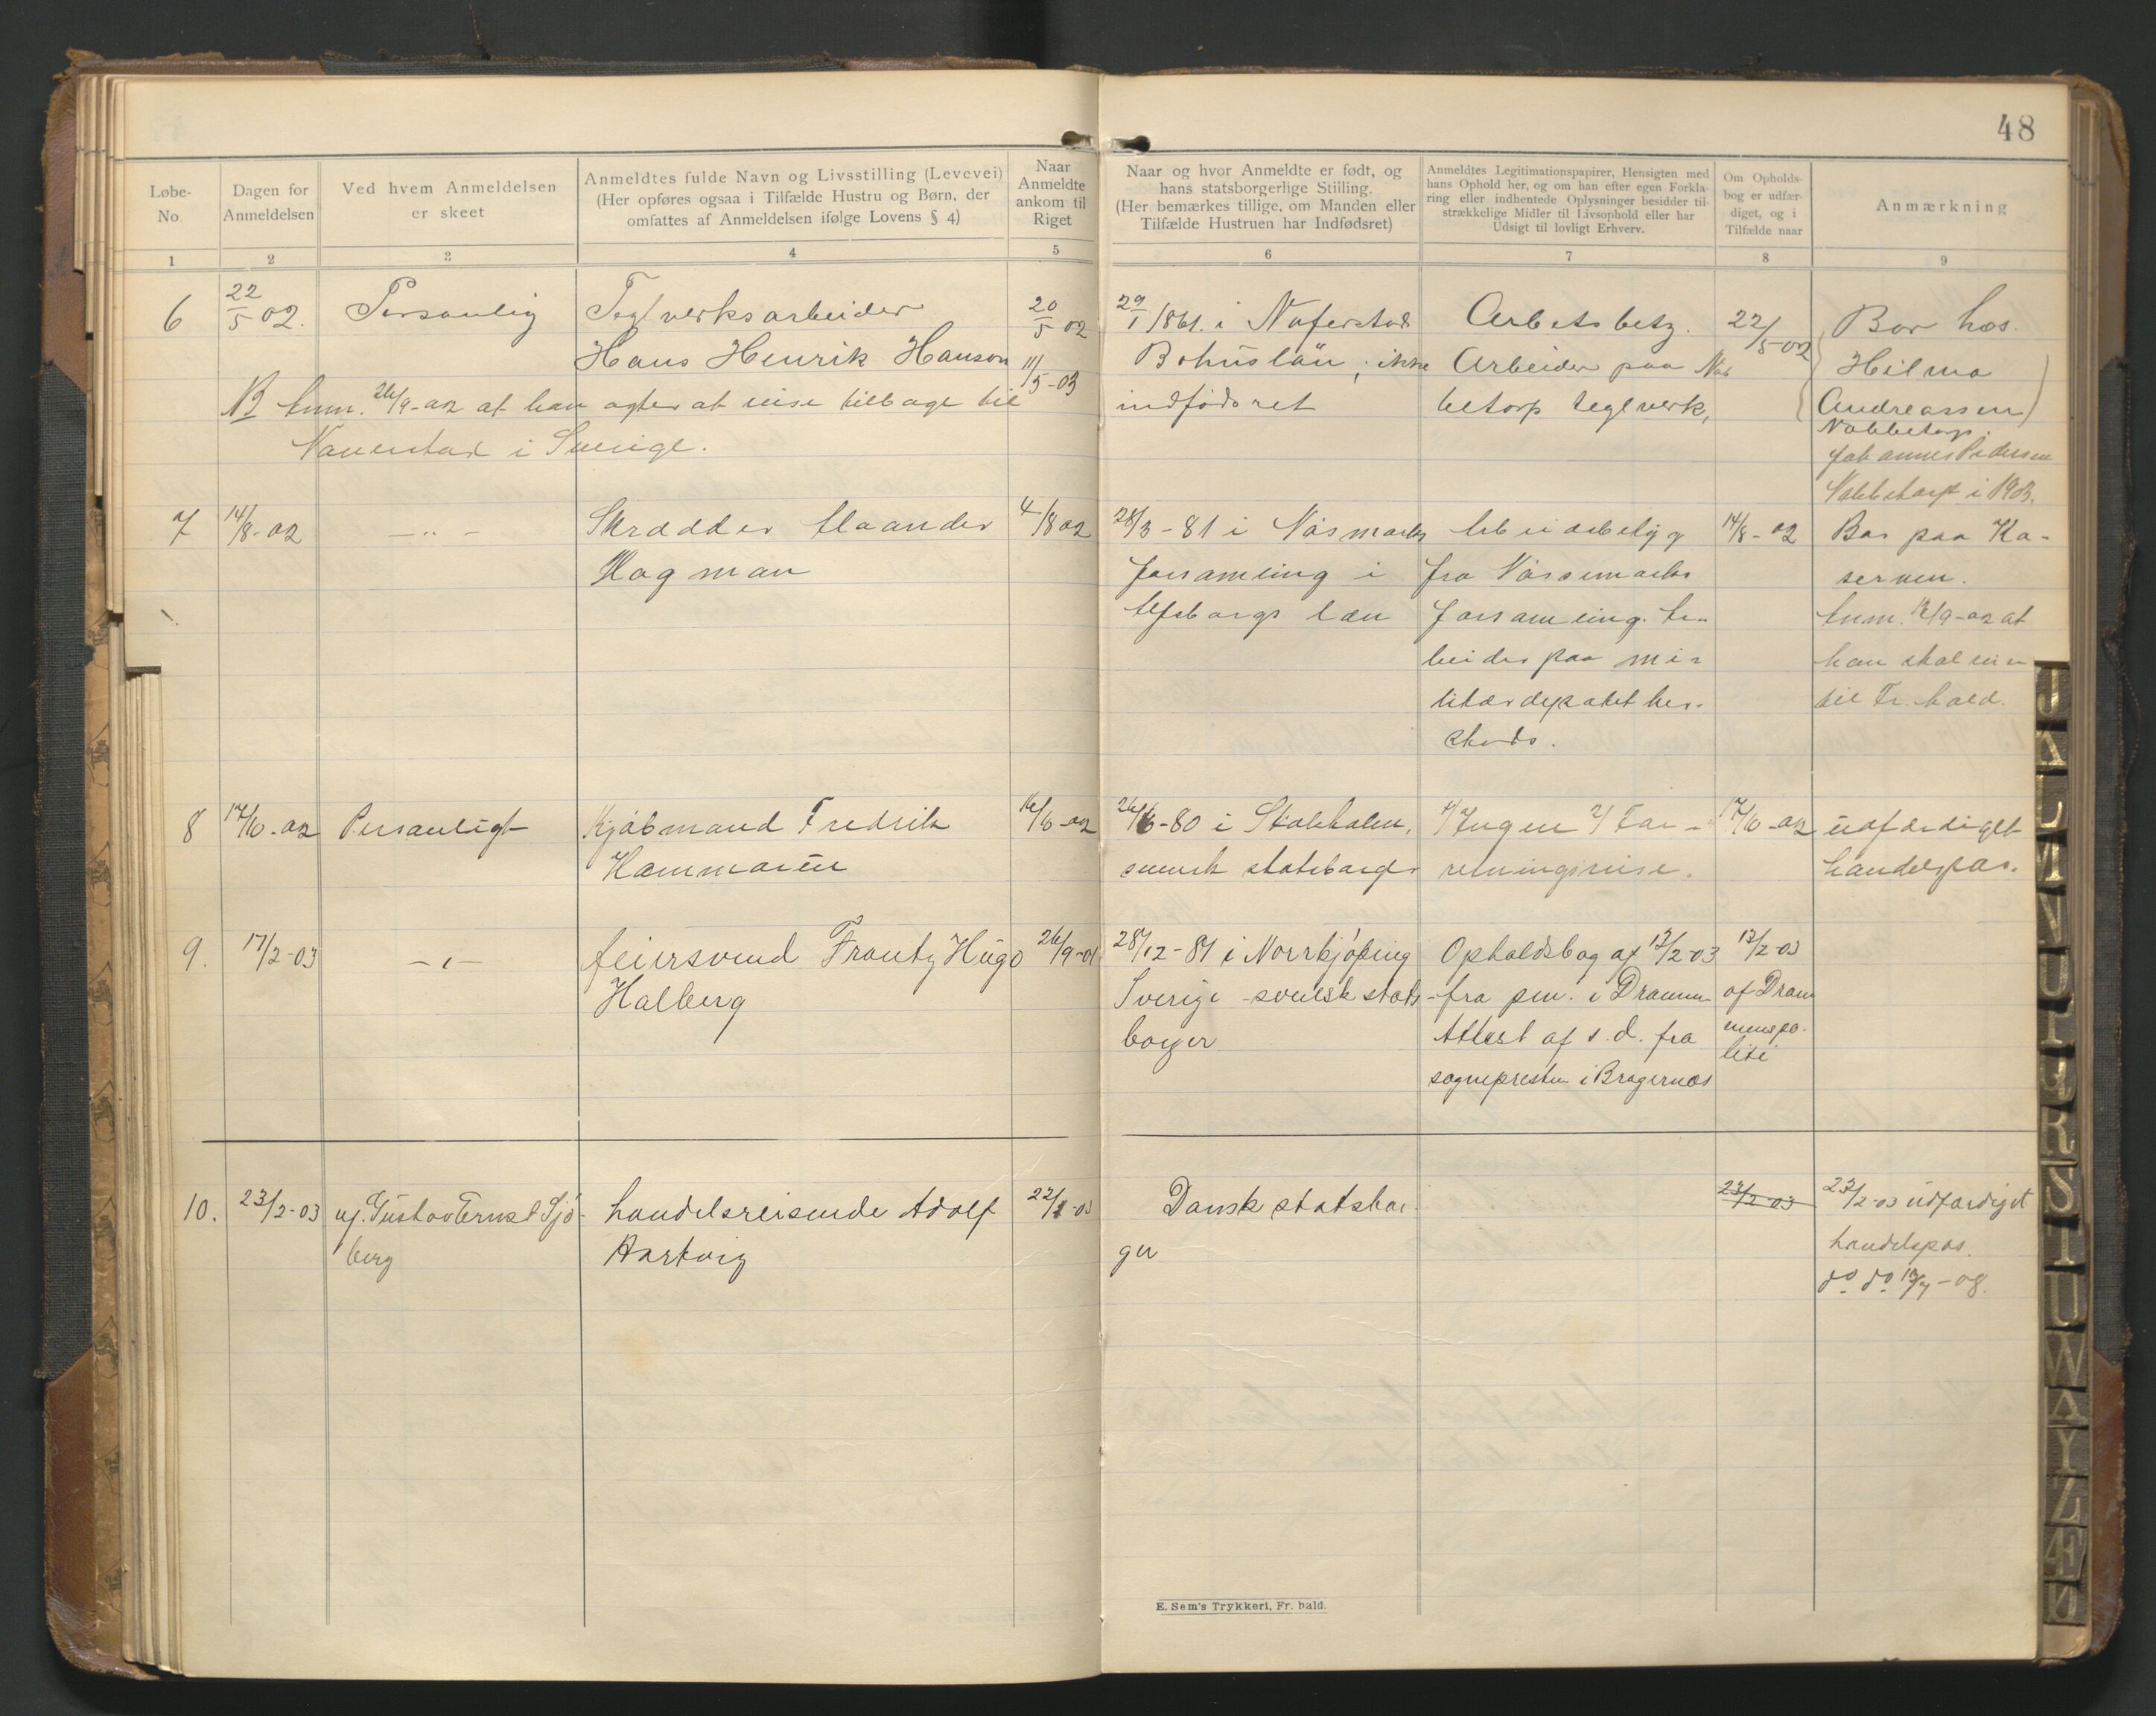 48
Løbe-
No.
Dagen for
Anmeldelsen
Ved hvem Anmeldelsen
er skeet
Anmeldtes fulde Navn og Livsstilling (Levevei)
(Her opføres ogsaa i Tilfælde Hustru og Børn, der
omfattes af Anmeldelsen ifølge Lovens § 4)
Naar
Anmeldte
ankom til
Riget
Naar og hvor Anmeldte er født, og
hans statsborgerlige Stilling.
(Her bemærkes tillige, om Manden eller
Tilfælde Hustruen har Indfødsret)
Anmeldtes Legitimationspapirer, Hensigten med
hans Ophold her, og om han efter egen Forkla-
ring eller indhentede Oplysninger besidder til-
strækkelige Midler til Livsophold eller har
Udsigt til lovligt Erhverv.
Om Opholds-
bog er udfær-
diget, og i
Tilfælde naar
Anmærkning
1 2 3 4 5 6 7 8 9
6
22/5 02.
Personlig
Teglverksarbeider
Hans Henrik Hanson
20/5 02
11/5-03
29/1 1861. i Naferstad
Bohuslän, ikke
indfødsret
Arbetsbetg.
Arbeider paa Nab
betorp teglverk,
22/5-02
Bor hos
Hilma
Andreassen
Nabbetorp.
Johannes Pedersen
Nabbetorp i 1903.
NB Anm. 26/9-02 at han agter at reise tilbage til
Naverstad i Sverige.
7
14/8-02
- " -
Skrædder Alaander
Hagman
4/8 02
28/3-81 i Násmarks
forsamling i
Elfsborgs län
Arbeidsbetyg
fra Nássemarks
forsamling. Ar-
beider paa mi-
litærdepotet her-
steds.
14/8-02
Bor paa Ka-
sernen.
Anm. 12/9-02 at
han skal reise
til Fr.hald.
8
17/10-02
Personligt
Kjøbmand Fredrik
Hammarén
16/10-02
26/6-80 i Stokholm,
svensk statsborger
1/ Ingen 2/ For-
retningsreise.
17/10-02
udfærdiget
handelspas.
9.
17/2-03
- " -
feiersvend Frantz Hugo
Halberg
26/9-01
28/12-81 i Norrkjøping
Sverige - svensk stats-
borger
Opholdsbog af 12/2-03
fra pm. i Drammen
Attest af s.d. fra
sognepresten i Bragernæs
12/2-03
af Dram
mens po-
liti
10.
23/2-03
vj. Gustav Ernst Sjö-
berg
handelsreisende Adolf
Hartvig
22/2-03
Dansk statsbor-
ger
23/2-03
23/2-03 udfærdiget
handelspas.
do do 13/7-08.
E. Sem's Trykkeri, Fr. hald.
J
K
L
M
N
O
P
Q
R
S
T
U
W
A
Y
Z
Æ
Ø